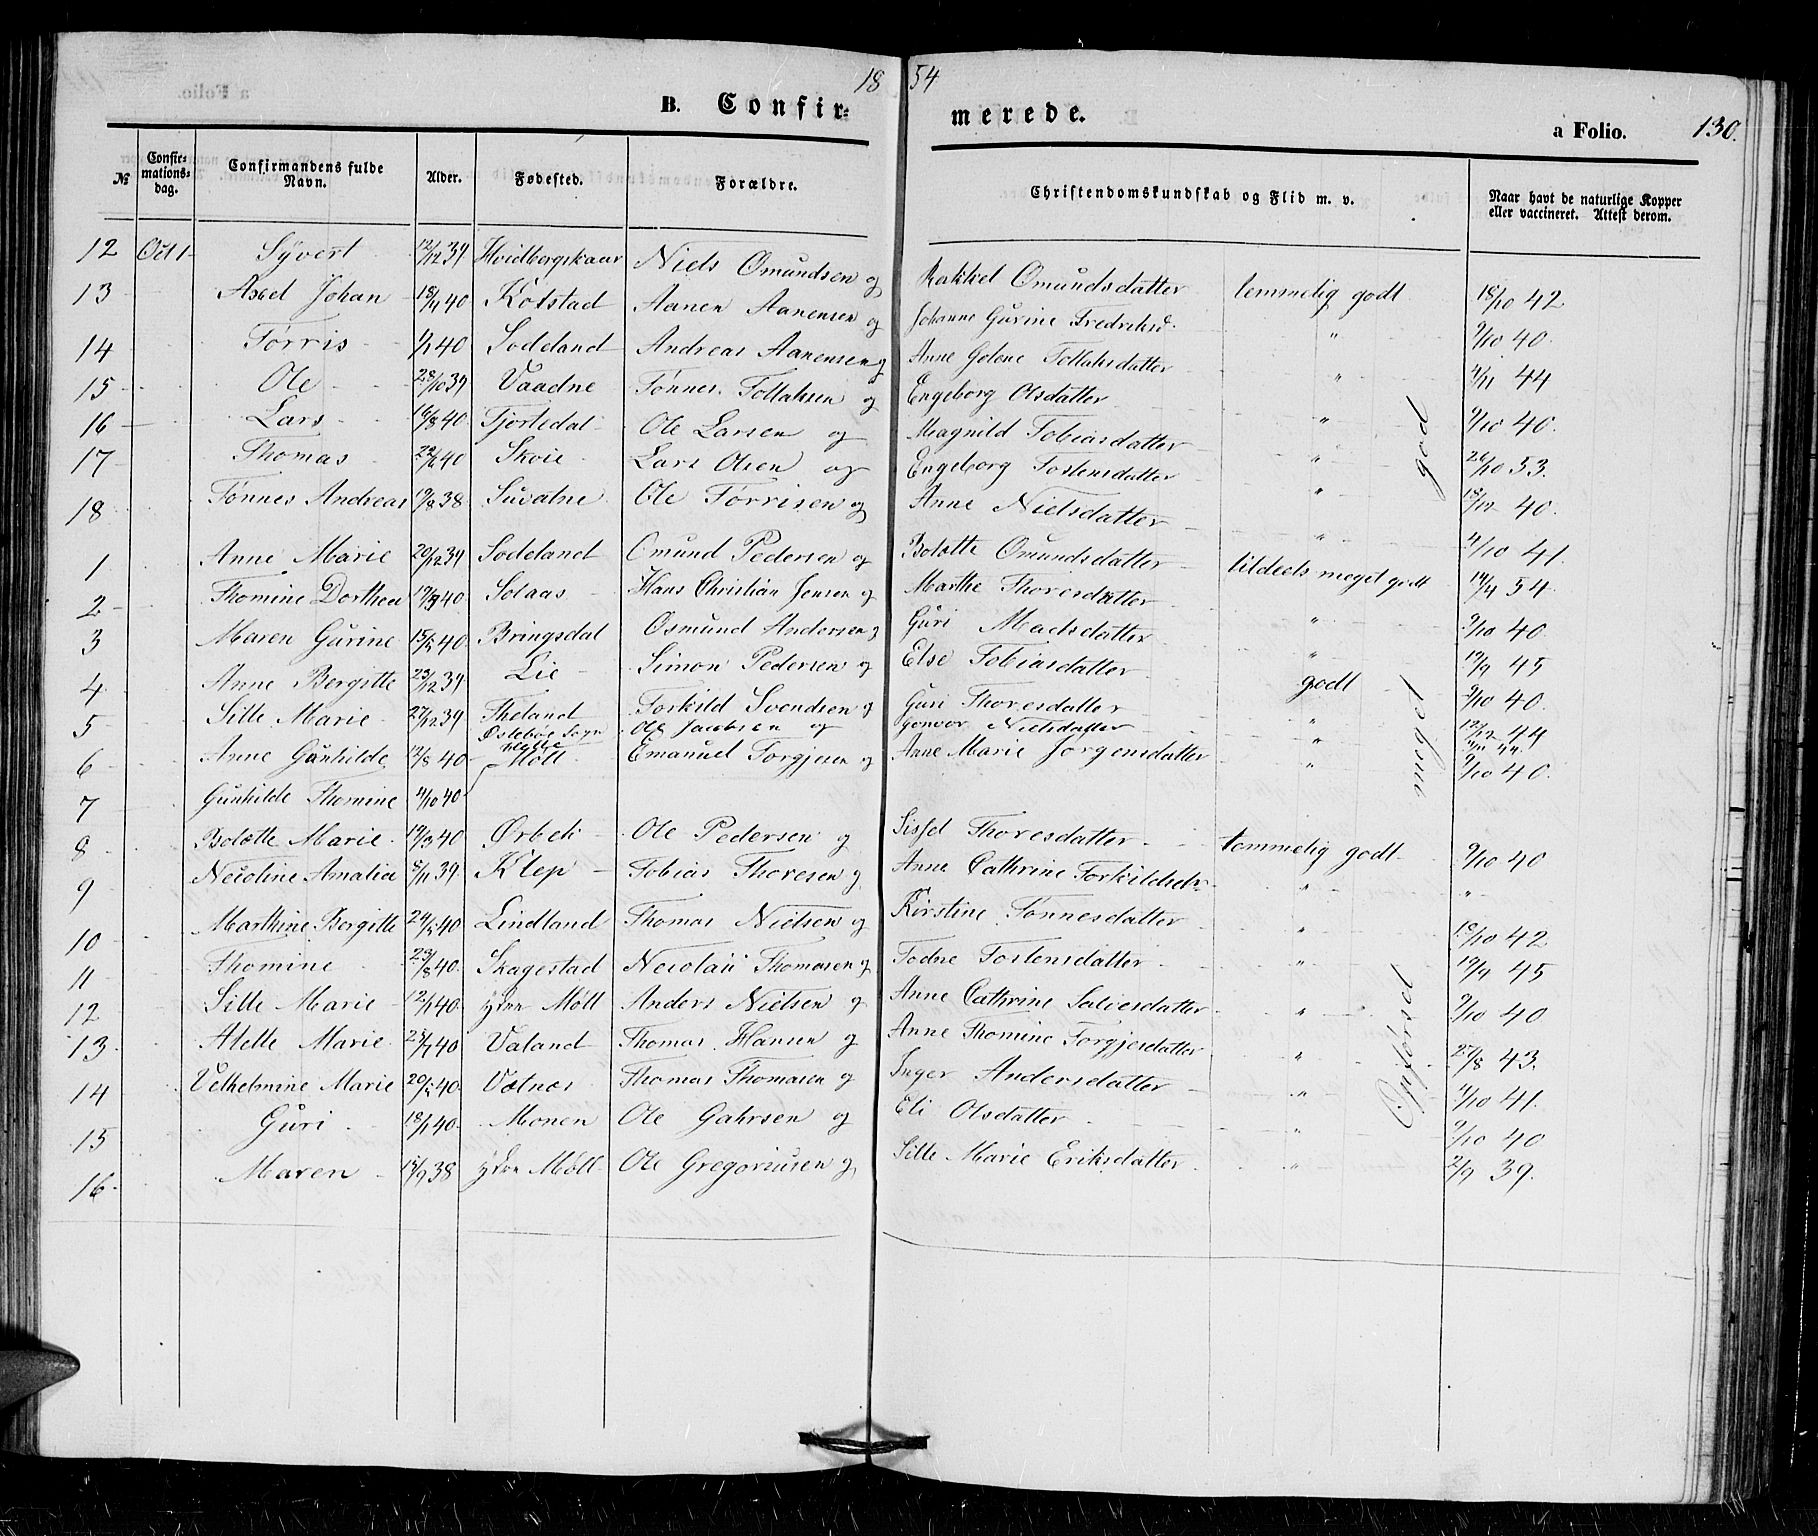 18 54
B. Confir-
merede.
a Folio. 130.
№ Confir-mations-dag. Confirmandens fulde Navn. Alder. Fødested. Forældre. Christendomskundskab og Flid m. v. Naar havt de naturlige Kopper eller vaccineret. Attest derom.
12 Oct 1 Syvert 12/12 39 Hvidbergskaar Niels Omundsen og Rakkel Omundsdatter temmelig godt 18/10 42
13 Axel Johan 18/4 40 Kolstad Aanen Aanensen og Johanne Gurine Fredriksd. " 9/10 40
14 Tørris 40 Sodeland Andreas Aanensen og Anne Golene Tollaksdatter " 4/11 44
15 Ole 28/10 39 Vaadne Tønnes Tollaksen og Engeborg Olsdatter " 9/10 40.
16 Lars 16/8 40 Tjortedal Ole Larsen og Magnild Tobiasdatter " 26/10 53.
17 Thomas 40 Skoie Lars Olsen og Engeborg Tostensdatter " 18/12 40.
18 Tønnes Andreas 19/8 38 Suvatne Ole Tørrisen og Anne Nielsdatter " 4/10 41.
1 Anne Marie 20/12 39 Sodeland Omund Pedersen og Bolætte Omundsdatter tildeels meget godt 19/4 54.
2 Thomine Dorthea 40 Solaas Hans Christian Jensen og Marthe Thoresdatter " 9/10 40.
3 Maren Gurine 40 Bringsdal Osmund Andersen og Guri Madsdatter " 19/9 45
4 Anne Bergitte 23/12 39 Lie Simon Pedersen og Else Tobiasdatter godt 9/10 40.
5 Sille Marie 27/12 39 Theland Torkild Svendsen og Guri Thoresdatter " 12/12 44
Østebøe Sogn Ole Jacobsen og Gonvor Nielsdatter "
6 Anne Gunhilde 12/8 40 Møll Emanuel Torgjesen og Anne Marie Jørgensdatter " 9/10 40.
7 Gunhilde Thomine 4/10 40
8 Bolætte Marie 19/3 40 Ørbek Ole Pedersen og Sissel Thoresdatter temmelig godt 9/10 40
9 Necoline Amalia 8/11 39 Klep Tobias Thoresen og Anne Cathrine Torkildsdtr " "
10 Marthine Bergitte 40 Lindland Thomas Nielsen og Kirstine Tønnesdatter " 18/10 42
11 Thomine 23/8 40 Skagestad Necolaii Thomasen og Todne Tostensdatter " 19/9 45
12 Sille Marie 40 Møll Anders Nielsen og Anne Cathrine Saliesdatter " 9/10 40
13 Alette Marie 40 Valand Thomas Hansen og Anne Thomine Torgjesdatter " 27/8 43.
14 Velhelmine Marie 40 Vatnes Thomas Thomasen og Inger Andersdatter " 4/10 41.
15 Guri 40 Monen Ole Gahrsen og Eli Olsdatter " 9/10 40
16 Maren 38 Møll Ole Gregoriusen og Sille Marie Eriksdatter " 2/9 39.
Opførsel meget god